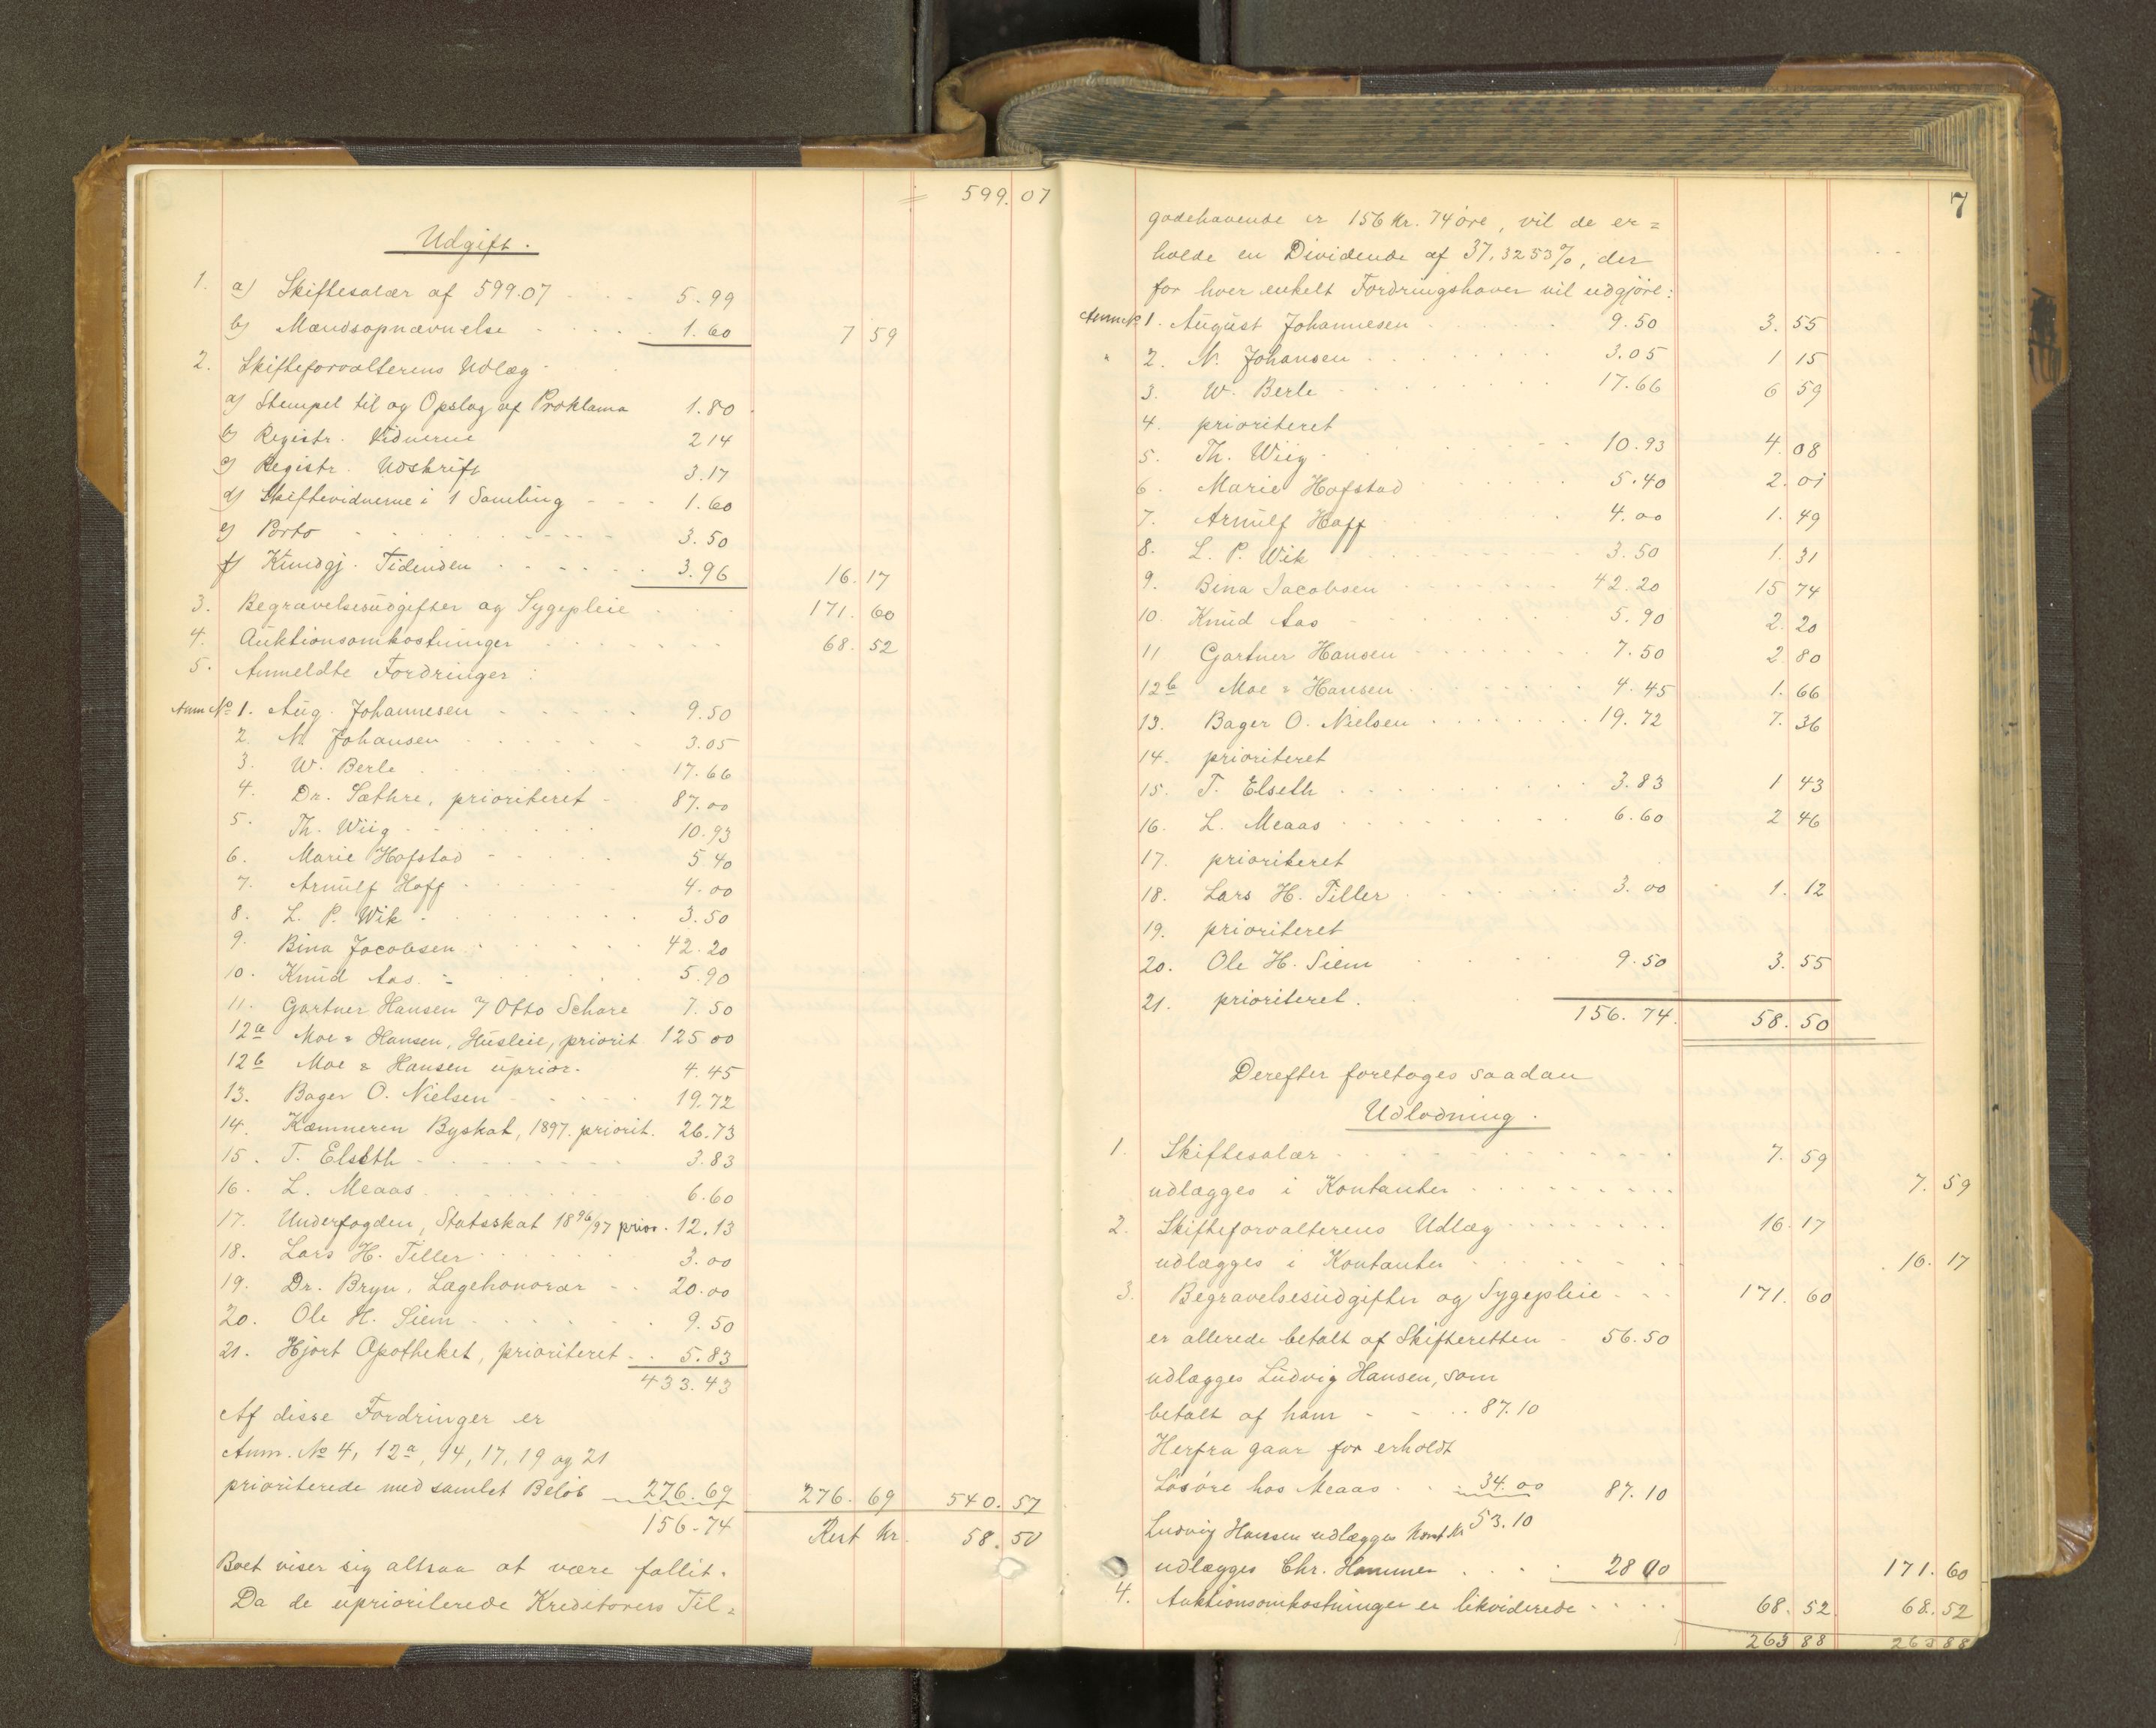 = 599.07
Udgift.
1. a) Skiftesalær af 599.07 5.99
b) Mændsopnævnelse 1.60 7 59
2. Skifteforvalterens Udlæg
a) Stempel til og Opslag af Proklama 1.80
b) Registr. Vidnerne 2 14
c) Registr. Udskrift 3.17
d) Skiftevidnerne i 1 Samling 1.60
e) Porto 3.50
f) Kundgj. Tidenden 3.96 16.17
3. Begravelsesudgifter og Sygepleie 171.60
4. Auktionsomkostninger 68.52
5. Anmeldte Fordringer:
Anm No 1. Aug. Johannesen 9.50
2. N. Johansen 3.05
3. W. Berle 17.66
4. Dr. Sæthre, prioriteret 87.00
5. Th. Wiig 10.93
6. Marie Hofstad 5 40
7. Arnulf Hoff 4.00
8. L. P. Wik 3.50
9. Bina Jacobsen 42.20
10. Knud Aas 5.90
11. Gartner Hansen Otto Schare 7.50
12a Moe & Hansen, Husleie, priorit 125 00
12b Moe & Hansen uprior. 4.45
13. Bager O. Nielsen 19.72
14. Kæmneren Byskat, 1897. priorit. 26.73
15. T. Elseth 3.83
16. L. Meaas 6.60
17. Underfogden, Statsskat 1896/97 prior. 12.13
18. Lars H. Tiller 3.00
19. Dr. Bryn, Lægehonorar 20.00
20. Ole H. Siem 9.50
21. Hjort Apotheket, prioriteret 5.83
433.43
Af disse Fordringer er
Anm. No 4, 12a, 14, 17, 19 og 21
prioriterede med samlet Beløb 276.69 276.69 540.57
156.74 Rest Kr. 58.50
Boet viser sig altsaa at være fallit.
Da de uprioriterede Kreditorers Til=
7
godehavende er 156 Kr. 74 øre, vil de er=
holde en Dividende af 37,3253%, der
for hver enkelt Fordringshaver vil udgjøre:
Anm No 1. August Johannesen 9.50 3.55
" 2. N. Johansen 3.05 1 15
3. W. Berle 17.66 6 59
4. prioriteret
5. Th. Wiig 10.93 4.08
6. Marie Hofstad 5.40 2.01
7. Arnulf Hoff 4.00 1.49
8. L. P. Wik 3.50 1.31
9. Bina Jacobsen 42.20 15 74
10. Knud Aas 5.90 2.20
11 Gartner Hansen 7.50 2 80
12b Moe & Hansen 4.45 1.66
13. Bager O. Nielsen 19.72 7.36
14. prioriteret
15. T. Elseth 3.83 1 43
16. L. Meaas 6.60 2 46
17. prioriteret
18. Lars H. Tiller 3.00 1.12
19. prioriteret
20. Ole H. Siem 9.50 3.55
21. prioriteret.
156.74. 58.50
Derefter foretoges saadan
Udlodning.
1. Skiftesalær 7.59
udlægges i Kontanter 7.59
2. Skifteforvalterens Udlæg 16.17
udlægges i Kontanter 16.17
3. Begravelsesudgifter og Sygepleie 171.60
er allerede betalt af Skifteretten 56.50
udlægges Ludvig Hansen, som
betalt af ham 87.10
Herfra gaar for erholdt
Løsøre hos Meaas 34.00 87.10
Ludvig Hansen udlægges Kont. Kr 53.10
udlægges Chr. Hammer 28 00 171.60
4. Auktionsomkostninger er likviderede 68.52. 68.52
263 88 263 88